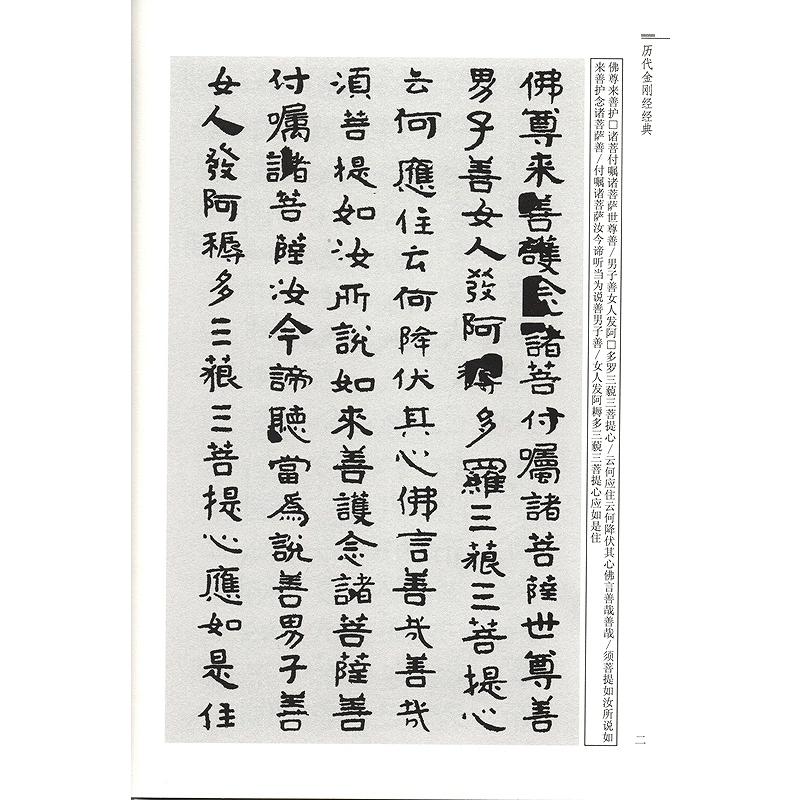 历代金刚经经典
二
佛尊来善护□诸菩付嘱诸菩萨世尊善/男子善女人发阿□多罗三藐三菩提心/云何应住云何降伏其心佛言善哉善哉/须菩提如汝所说如
来善护念诸菩萨善/付嘱诸菩萨汝今谛听当为说善男子善/女人发阿耨多三藐三菩提心应如是住
佛尊来善護念諸菩付囑諸菩薩世尊善
男子善女人發阿耨多羅三藐三菩提心
云何應住云何降伏其心佛言善哉善哉
須菩提如汝所說如來善護念諸菩薩善
付囑諸菩薩汝今諦聽當爲說善男子善
女人發阿耨多三藐三菩提心應如是住